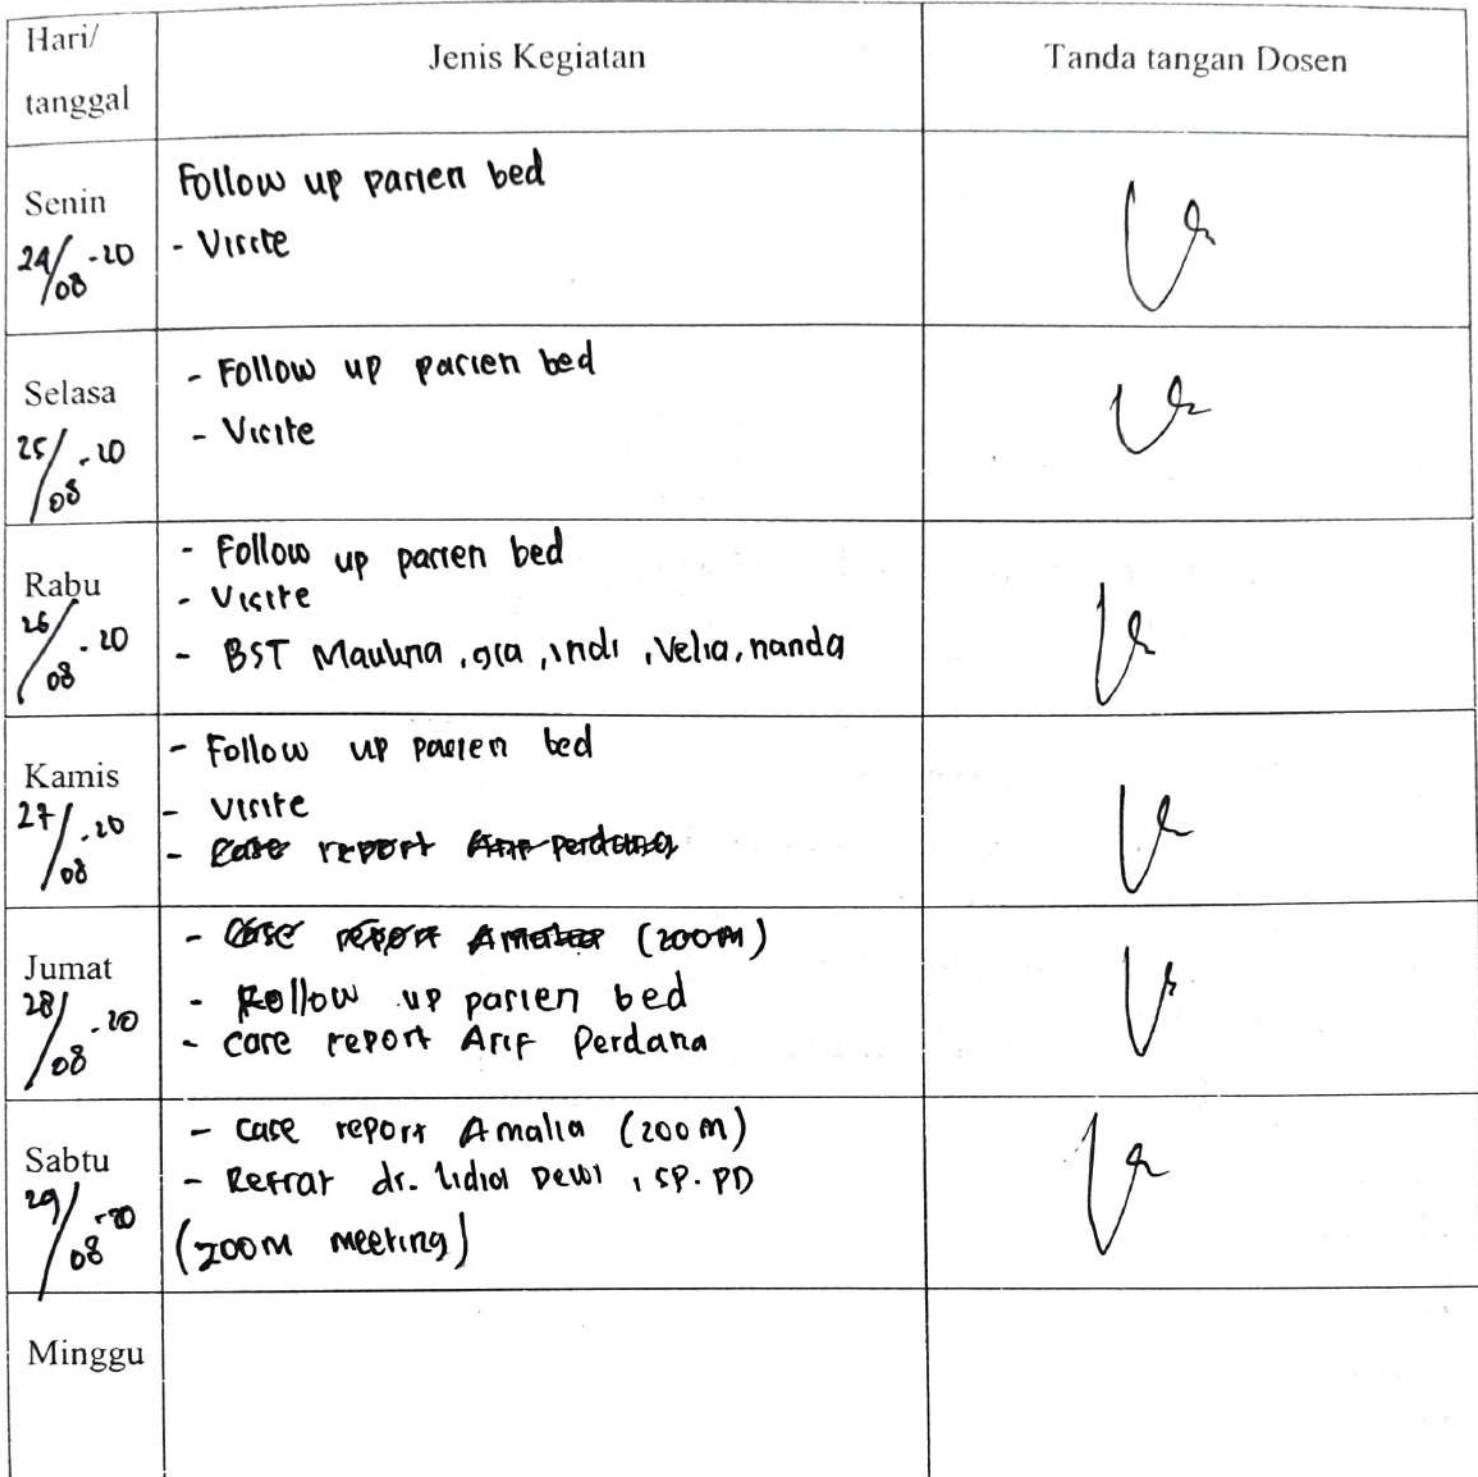 Hari/
tanggal
Jenis Kegiatan
Tanda tangan Dosen
Senin
24/08-20
Follow up pasien bed
- Visite
Selasa
25/08-20
- Follow up pasien bed
- Visite
Rabu
26/08-20
- Follow up pasien bed
- Visite
- BST Maulina, gia, indi, Velia, nanda
Kamis
27/08-20
- Follow up pasien bed
- Visite
- Case report Arif Perdana
Jumat
28/08-20
- Case report Amalia (zoom)
- Follow up pasien bed
- case report Arif Perdana
Sabtu
29/08-20
- case report Amalia (zoom)
- Refrat dr. Lidia Dewi, SP.PD
(zoom meeting)
Minggu